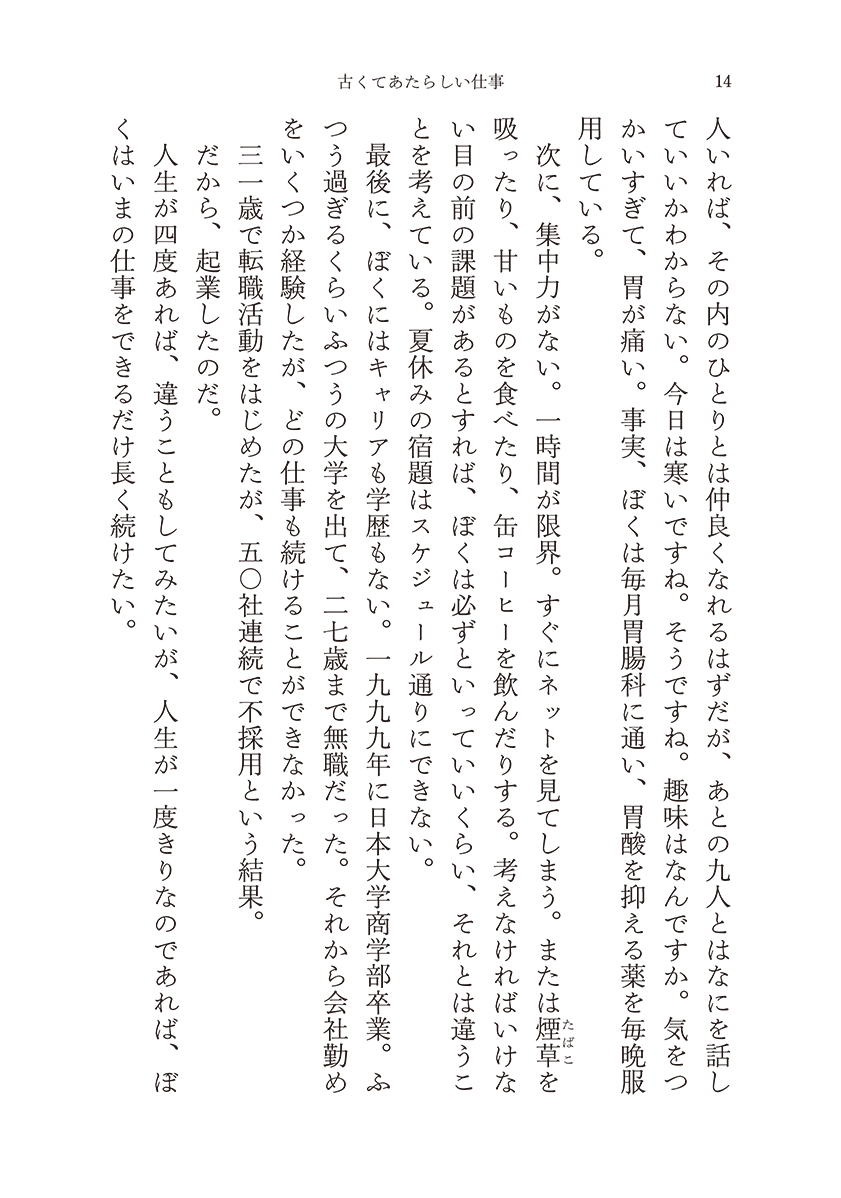 古くてあたらしい仕事
14
人いれば、その内のひとりとは仲良くなれるはずだが、あとの九人とはなにを話し
ていいかわからない。今日は寒いですね。そうですね。趣味はなんですか。気をつ
かいすぎて、胃が痛い。事実、ぼくは毎月胃腸科に通い、胃酸を抑える薬を毎晩服
用している。
次に、集中力がない。一時間が限界。すぐにネットを見てしまう。または煙草を
たばこ
吸ったり、甘いものを食べたり、缶コーヒーを飲んだりする。考えなければいけな
い目の前の課題があるとすれば、ぼくは必ずといっていいくらい、それとは違うこ
とを考えている。夏休みの宿題はスケジュール通りにできない。
最後に、ぼくにはキャリアも学歴もない。一九九九年に日本大学商学部卒業。ふ
つう過ぎるくらいふつうの大学を出て、二七歳まで無職だった。それから会社勤め
をいくつか経験したが、どの仕事も続けることができなかった。
三一歳で転職活動をはじめたが、五〇社連続で不採用という結果。
だから、起業したのだ。
人生が四度あれば、違うこともしてみたいが、人生が一度きりなのであれば、ぼ
くはいまの仕事をできるだけ長く続けたい。